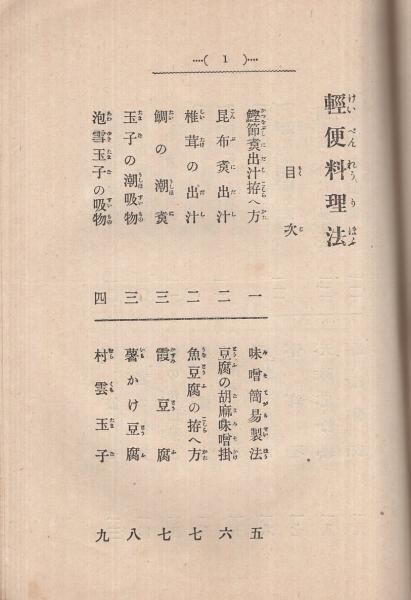 ….( 1 )….
輕便料理法
目次
鰹節煑出汁拵へ方 一
昆布煑出汁 二
椎茸の出汁 二
鯛の潮煑 三
玉子の潮吸物 三
泡雪玉子の吸物 四
味噌簡易製法 五
豆腐の胡麻味噌掛 六
魚豆腐の拵へ方 七
霞豆腐 七
薯かけ豆腐 八
村雲玉子 九